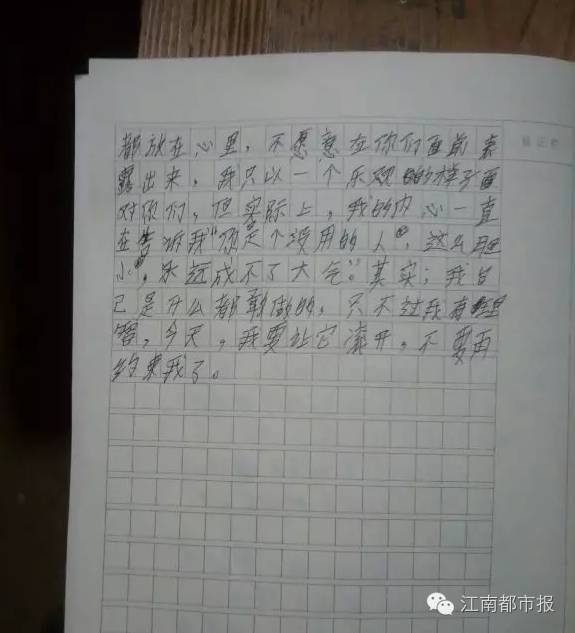 都放在心里，不愿意在你们面前表
露出来，我只以一个乐观的的样子面
对你们，但实际上，我的内心一直
在告诉我“你是个没用的人”，这么胆
小，永远成不了大气”。其实；我自
己是什么都敢做的，只不过我有理
智，今天，我要让它滚开，不要再
约束我了。
江南都市报